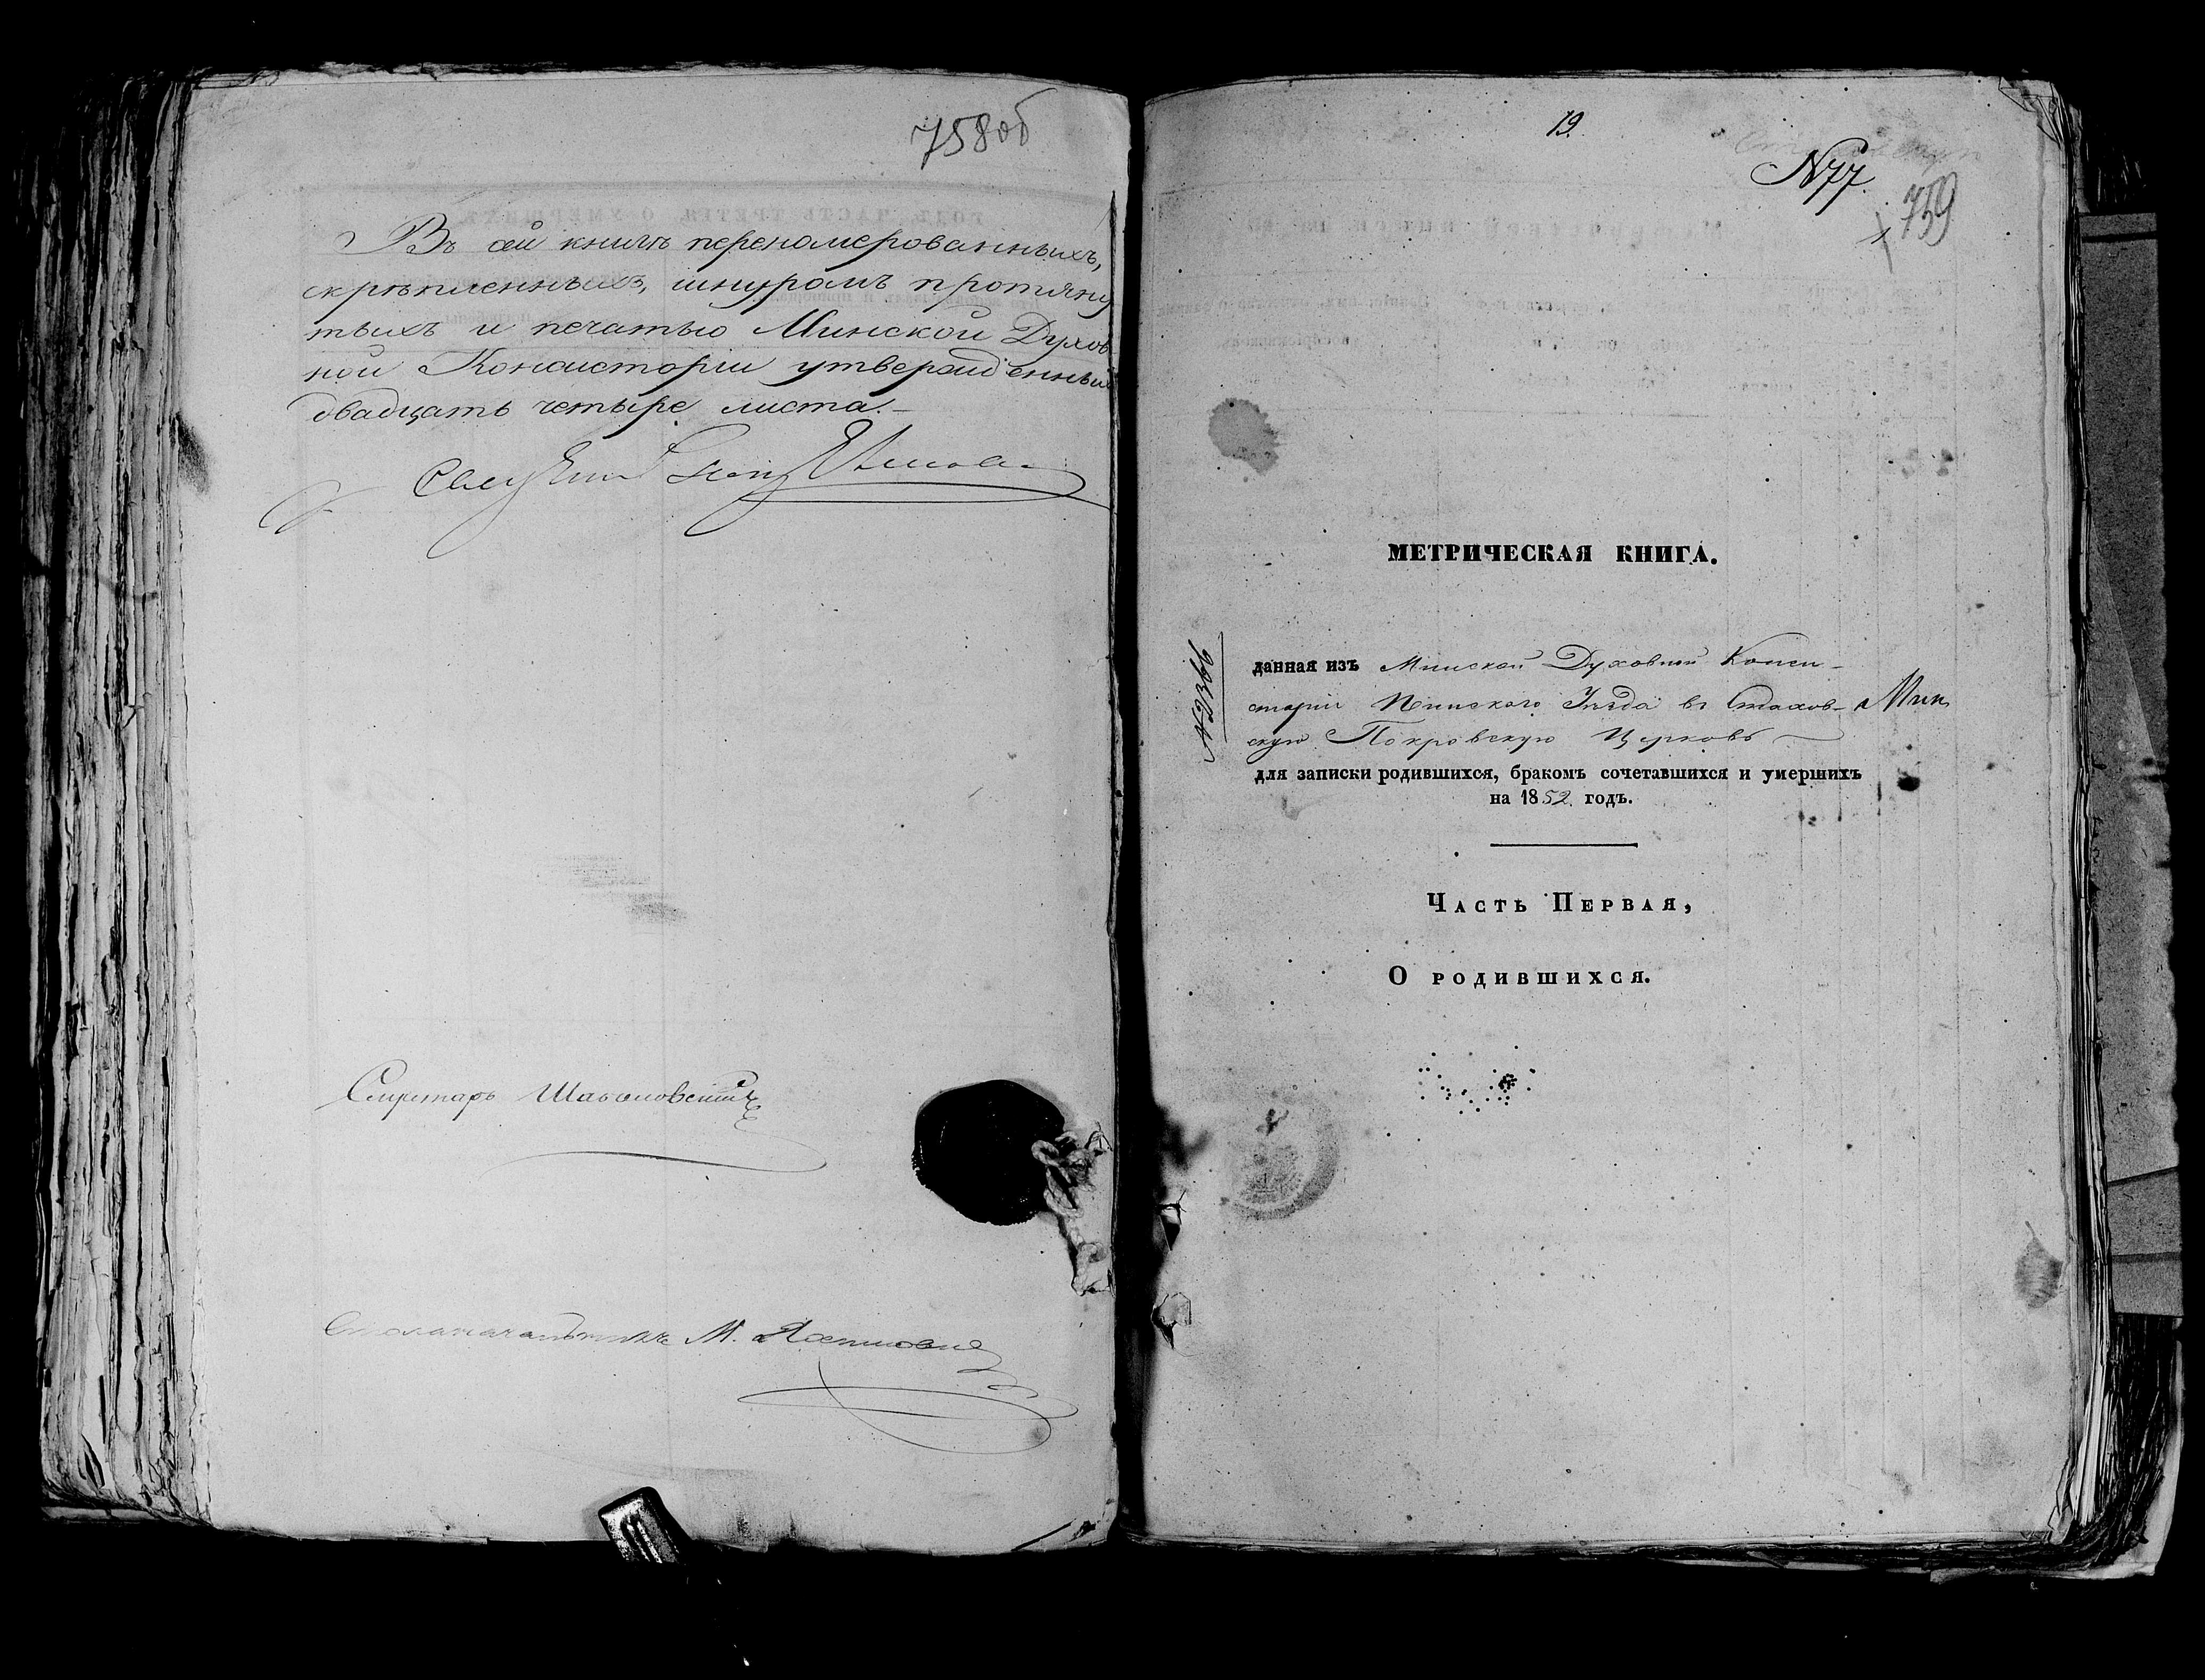 758об
Въ сей книгѣ переномерованныхъ,
скрѣпленныхъ, шнуромъ протяну
тыхъ и печатью Минской Духов
ной Консисторіи утвержденныхъ
двадцать четыре листа.
Секретарь
Столоначальникъ М.
19.
N77.
759
МЕТРИЧЕСКАЯ КНИГА.
N2366
данная изъ Минской Духовной Конси-
сторіи Пинскаго Уѣзда въ Стахов-
Мин
скую Покровскую Церковь
для записки родившихся, бракомъ сочетавшихся и умершихъ
на 1852 годъ.
Часть Первая,
О родившихся.